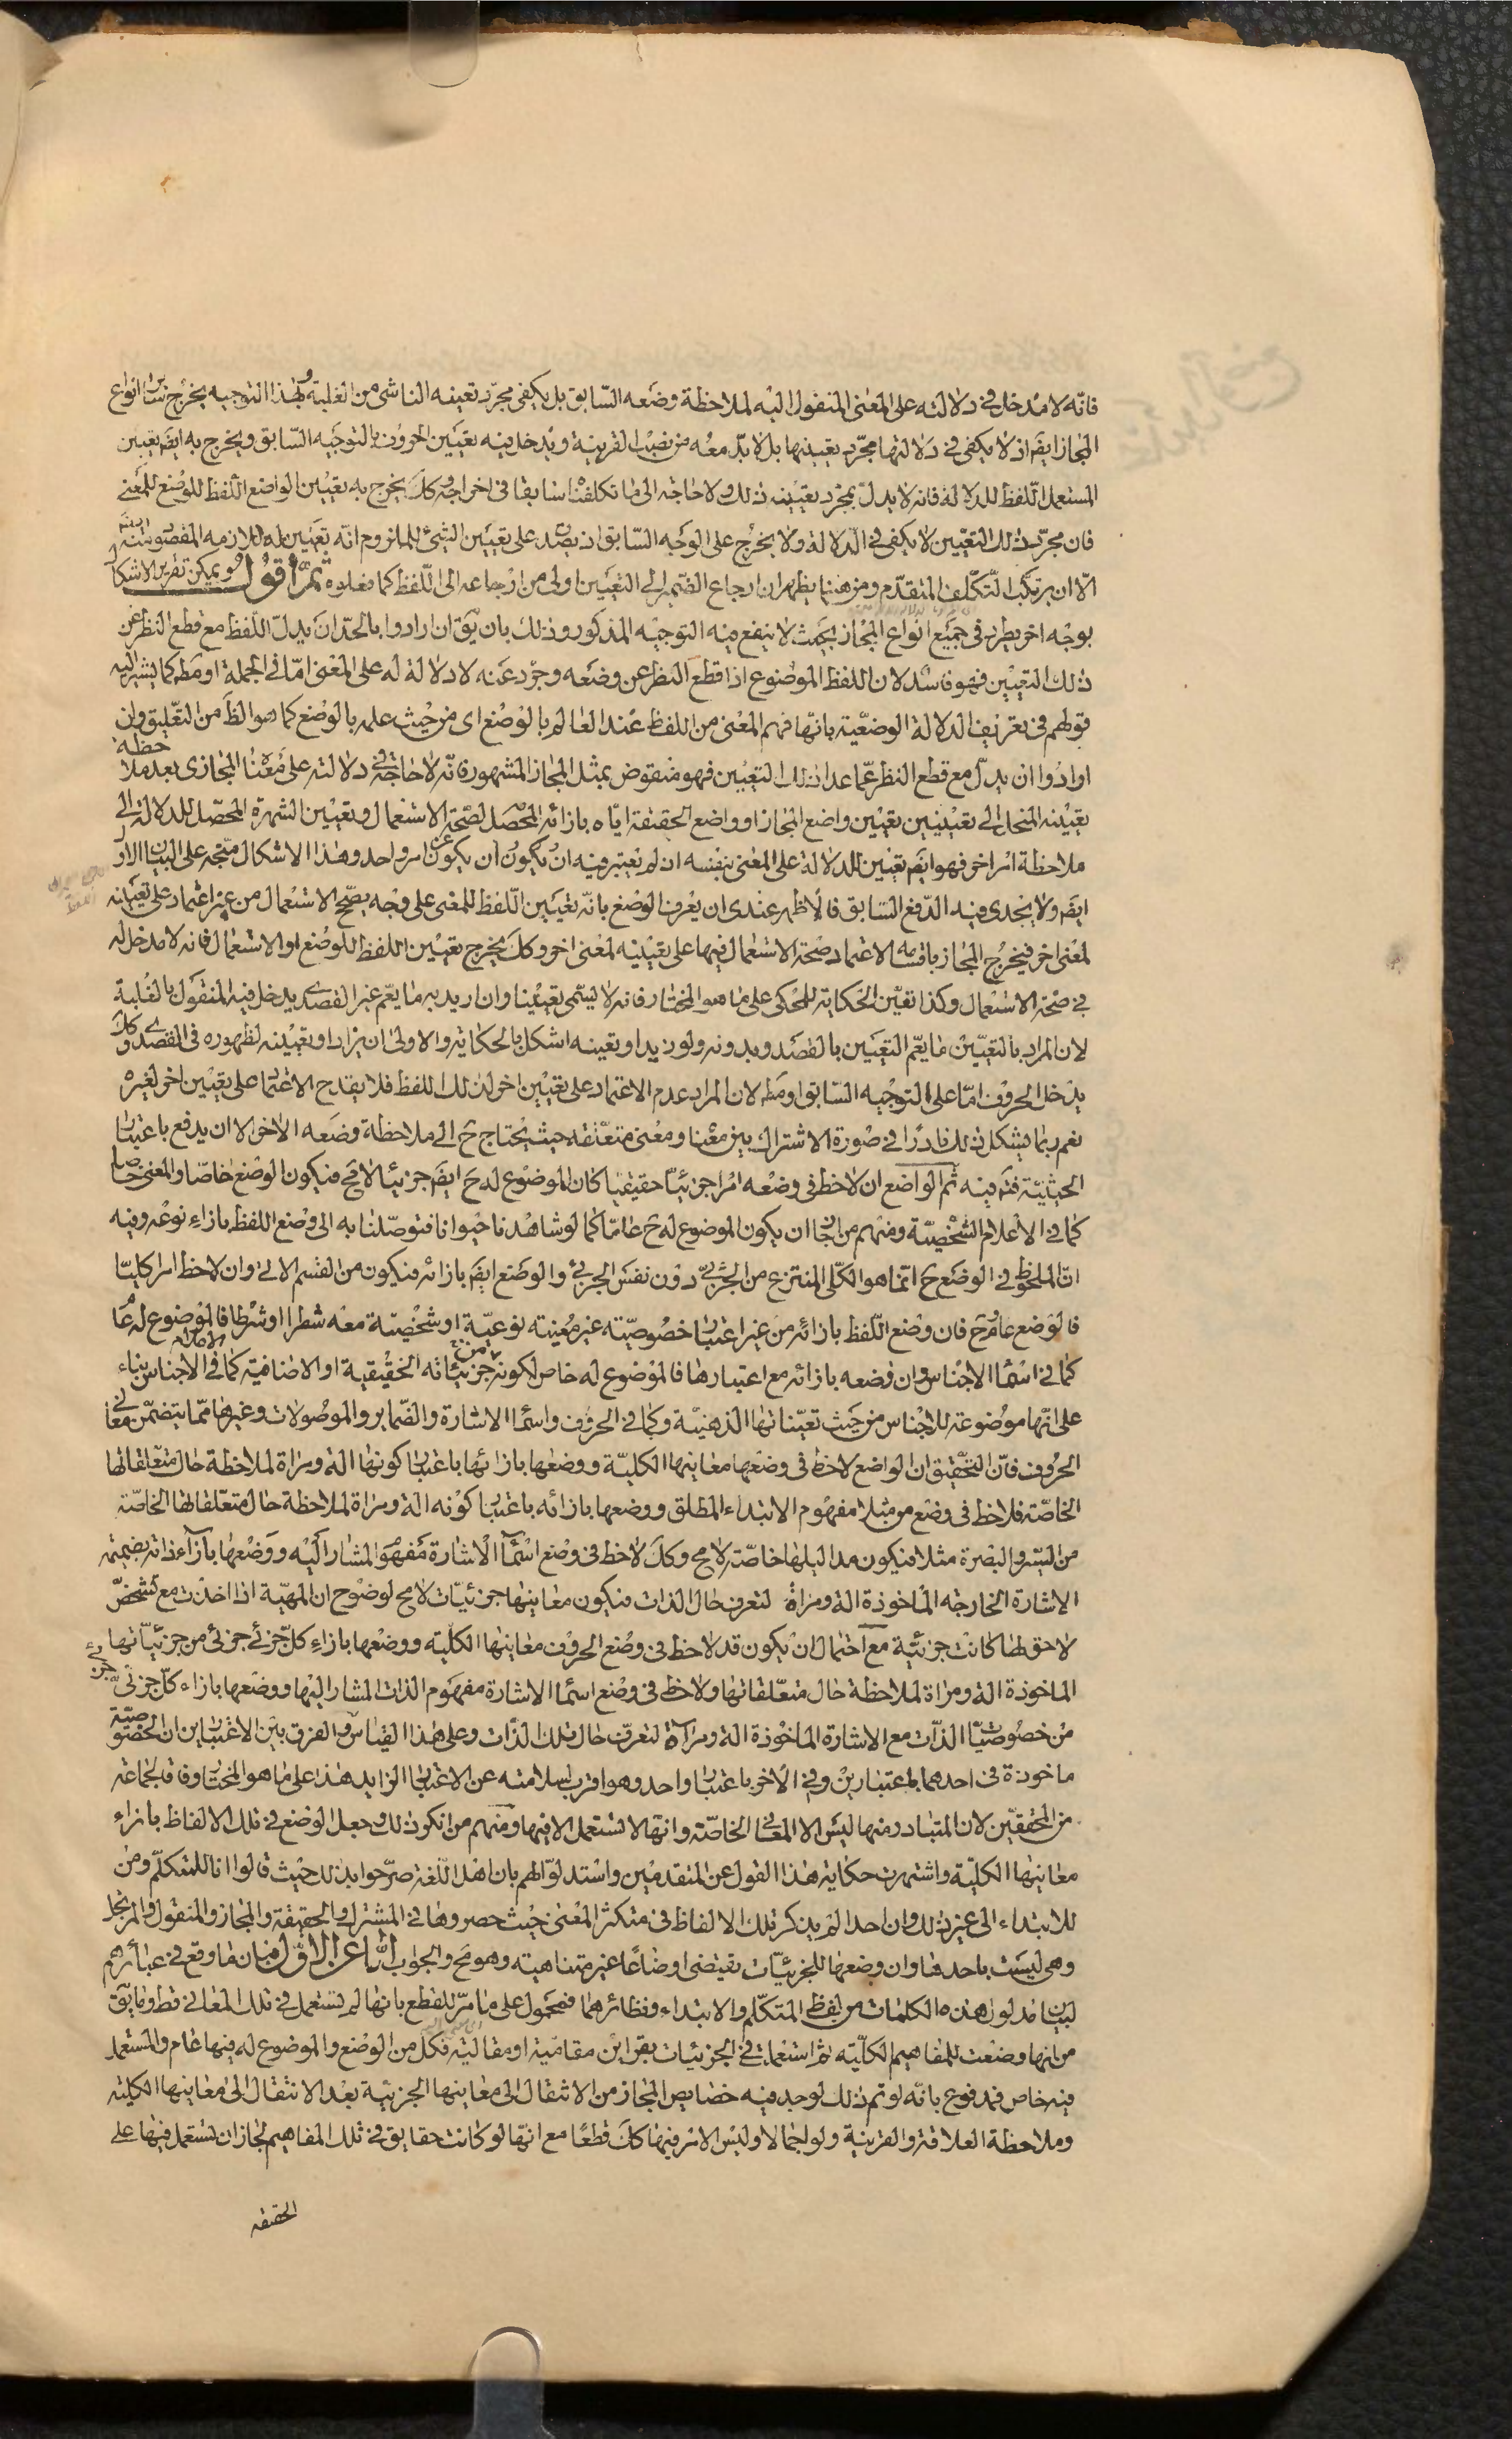 فانّه لا مدخل في دلالته على المعنى المنقول اليه لملاحظة وضعه السّابق بل يكفى مجرّد تعينه الناشى من الغلبة وبهذا التوجيه يخرج سائر انواع
المجاز ايضَ اذ لا يكفى في دلالتها مجرّد تعيينها بل لا بدّ معه من نصب القرينة ويدخل فيه تعيين الحروف بالتوجيه السّابق ويخرج به ايضَ تعيين
المستعمل اللّفظ للدلالة فانه لا يدلّ بمجرّد تعيينه ذلك ولا حاجة الى ما تكلفناه سابقا في اخراجه وكَلَ يخرج به تعيين الواضع اللّفظ للوضع للمعنى
فان مجرّد ذلك التعيين لا يكفى في الدّلالة ولا يخرج على الوجه السّابق اذ يصدق على تعيين الشئ للملزوم انّه تعيين له للازمه المقصود منه ايضَ
الّا ان يرتكب التّكلّف المتقدّم ومن هنا يظهر ان ارجاع الضّمير الى التعيين اولى من ارجاعه الى اللّفظ كما فعلوه ثمّ اقول ويمكن تقرير الاشكال
بوجه اخر يطرد في جميع انواع المجاز بحيث لا ينفع فيه التوجيه المذكور وذلك بان يَقَ ان ارادوا بالحدّ ان يدلّ اللّفظ مع قطع النظر عن
ذلك التعيين فهو فاسد لان اللفظ الموضوع اذا قطع النظر عن وضعه وجرّد عنه لا دلالة له على المعنى امّا في الجملة او مطَ كما يشير اليه
قولهم في تعريف الدلالة الوضعيّة بانّها فهم المعنى من اللفظ عند العالم بالوضع اى من حيث علمه بالوضع كما هو الظَ من التعليق وان
ارادوا ان يدلّ مع قطع النظر عمّا عدا ذلك التعيين فهو منقوض بمثل المجاز المشهور فانّه لا حاجة في دلالته على معناه المجازى بعد ملاحظة
تعيينه المنحل الى تعيينين تعيين واضع المجاز او واضع الحقيقة ايّاه بازائه المحصل لصحّة الاستعمال وتعيين الشهرة المحصّل للدلالة الى
ملاحظة امر اخر فهو ايضَ تعيين للدلالة على المعنى بنفسه ان لم يعتبر فيه ان يكون ان يكون عن امر واحد وهذا الاشكال متّجه على البيان الاوّل
ايضَ ولا يجدى فيه الدّفع السّابق فالاظهر عندى ان يعرف الوضع بانّه تعيين اللّفظ للمعنى على وجه يصحّ الاستعمال من غير اعتماد على تعيينه
لمعنى اخر فيخرج المجاز باقسامه لاعتماد صحّة الاستعمال فيها على تعيينه لمعنى اخر وكَلَ يخرج تعيين اللفظ للوضع او الاستعمال فانه لا مدخل له
في صحّة الاستعمال وكذا تعيّن الحكاية للمحكى على ما هو المختار فانه لا يسمّى تعيينا وان اريد به ما يعمّ غير القصدى يدخل فيه المنقول بالغلبة
لان المراد بالتعيين ما يعمّ التعيين بالقصد وبدونه ولو زيد او تعينه اشكل بالحكاية والاولى ان يزاد او تعيينه لظهوره في القصدى وكَلَ
يدخل الحروف امّا على التوجيه السّابق او مطَ لان المراد عدم الاعتماد على تعيين اخر لذلك اللفظ فلا يقدح الاعتماد على تعيين اخر لغيره
نعم ربما يشكل ذلك نادرًا في صورة الاشتراك بين معنا ومعنى متعلّقه حيث يحتاج حَ الى ملاحظة وضعه الاخر الا ان يدفع باعتبار
الحيثيّة فتَم فيه ثم الواضع ان لاحظ في وضعه امرا جزئيّا حقيقيا كان الموضوع له حَ ايضَ جزئيا لا مح فيكون الوضع خاصّا والمعنى خاصا
كما في الاعلام الشخصيّة ومنهم من اجاز ان يكون الموضوع له حَ عامّا كما لو شاهدنا حيوانا فتوصّلنا به الى وضع اللفظ بازاء نوعه وفيه
انّ الملحوظ في الوضع حَ انما هو الكلّى المنتزع من الجزئىّ دون نفس الجزئى والوضع ايضَ بازائه فيكون من القسم الاتى وان لاحظ امرا كليّا
فالوضع عام حَ فان وضع اللّفظ بازائه من غير اعتبار خصوصيّته غير معينه نوعيّة او شخصيّة معه شطرا او شرطا فالموضوع له عام
كما في اسماء الاجناس وان وضعه بازائه مع اعتبارها فالموضوع له خاص لكونه من جزئياته الحقيقية او الاضافية كما في اعلام الاجناس بناء
على انّها موضوعة للاجناس من حيث تعيّناتها الذهنيّة وكما في الحروف واسماء الاشارة والضّماير والموصولات وغيرها ممّا يتضمّن معانى
الحروف فانّ التحقيق ان الواضع لاحظ في وضعها معانيها الكليّة ووضعها بازائها باعتبار كونها الة ومراة لملاحظة حال متعلقاتها
الخاصّة فلاحظ في وضع من مثلا مفهوم الابتداء المطلق ووضعها بازائه باعتبار كونه الة ومراة لملاحظة حال متعلقاتها الخاصّة
من السّير والبصرة مثلا فيكون مداليلها خاصّة لا مح وكَلَ لاحظ في وضع اسماء الاشارة مفهوم المشار اليه ووضعها بازاء ذاته بضميمة
الاشارة الخارجة الماخوذة الة ومراة لتعرف حال الذات فيكون معانيها جزئيّات لا مح لوضوح ان المهيّة اذا اخذت مع تشخّص
لاحق لها كانت جزئيّة مع احتمال ان يكون قد لاحظ في وضع الحروف معانيها الكليّه ووضعها بازاء كلّ جزئى جزئى من جزئيّاتها
الماخوذة الة ومراة لملاحظة حال متعلّقاتها ولاحظ في وضع اسماء الاشارة مفهوم الذات المشار اليها ووضعها بازاء كلّ جزئىّ جزئى
من خصوصيّات الذّات مع الاشارة الماخوذة الة ومراة لتعرّف حال تلك الذّات وعلى هذا القياس والفرق بين الاعتبارين ان الخصوصيّة
ماخوذة في احدهما باعتبارين وفي الاخر باعتبار واحد وهو اقرب لسلامته عن الاعتبار الزايد هذا على ما هو المختار وفاقا لجماعة
من المحققين لان المتبادر منها ليس الا المعانى الخاصّة وانّها لا تستعمل الا فيها ومنهم من انكر ذلك وجعل الوضع في تلك الالفاظ بازاء
معانيها الكليّة واشتهرت حكاية هذا القول عن المتقدمين واستدلوا لهم بان اهل اللّغة صرّحوا بذلك حيث قالوا انا للمتكلّم ومن
للابتداء الى غير ذلك وان احدا لم يذكر تلك الالفاظ في متكثر المعنى حيث حصروها في المشترك والحقيقة والمجاز والمنقول والمرتجل
وهى ليست باحدها وان وضعها للجزئيّات يقتضى اوضاعًا غير متناهيه وهو مح والجواب امّا عن الاوّل فبان ما وقع في عبائرهم
لبيان مدلول هذه الكلمات من لفظى المتكلّم والابتداء ونظائرهما فمحمول على ما مرّ للقطع بانها لم تستعمل في تلك المعانى قط وما يَقَ
من انها وضعت للمفاهيم الكليّه ثم استعملت في الجزئيات بقراين مقاميّة او مقالية فكل من الوضع والموضوع له فيها عام والمستعمل
فيه خاص فمدفوع بانّه لو تم ذلك لوجد فيه خصايص المجاز من الانتقال الى معانيها الجزئيّة بعد الانتقال الى معانيها الكليّة
وملاحظة العلاقة والقرينة ولو اجمالا وليس الامر فيها كَلَ قطعًا مع انّها لو كانت حقايق في تلك المفاهيم لجاز ان تستعمل فيها على
الحقيقة